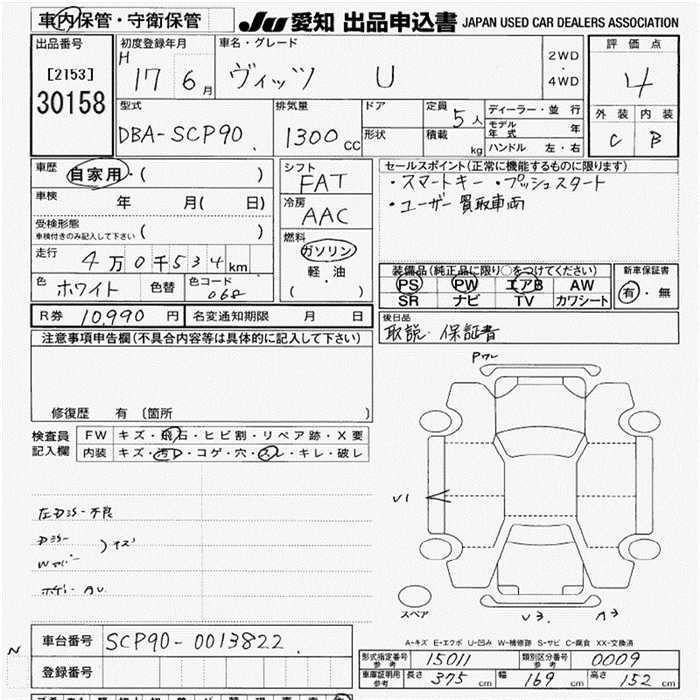 車内保管・守衛保管 JU 愛知 出品申込書 JAPAN USED CAR DEALERS ASSOCIATION
出品番号
[2153]
30158
初度登録年月
H 17 6月
車名・グレード
ヴィッツ U
2WD
・
4WD
評価点
4
外装 内装
C B
型式
DBA-SCP90
排気量
1300cc
ドア
形状
定員
5人
積載 kg
ディーラー・並行
モデル年式 年
ハンドル 左・右
車歴
自家用・( )
車検 年 月( 日)
受検形態
車検付きのみ記入して下さい ( )
走行 4万0千534km
色 ホワイト 色替 色コード 068
シフト
FAT
冷房
AAC
燃料
ガソリン
軽・油
( )
セールスポイント(正常に機能するものに限ります)
・スマートキー・プッシュスタート
・ユーザー買取車両
装備品(純正品に限り○をつけてください)
PS PW エアB AW
SR ナビ TV カワシート
新車保証書
有・無
R券 10,990 円 名変通知期限 月 日
後日品
取説・保証書
注意事項申告欄(不具合内容等は具体的に記入して下さい)
修復歴 有 (箇所 )
検査員
記入欄
FW キズ・飛石・ヒビ割・リペア跡・X要
内装 キズ・汚レ・コゲ・穴・スレ・キレ・破レ
左ドラミラー不良
キズ
U1
スペア
U3
A3
A-キズ E-エクボ U-凹み W-補修跡 S-サビ C-腐食 XX-交換済
車台番号 SCP90-0013822
登録番号
N
形式指定番号
参考
15011
類別区分番号
参考
0009
車庫証明用
参考
長さ 375cm 幅 169cm 高さ 152cm